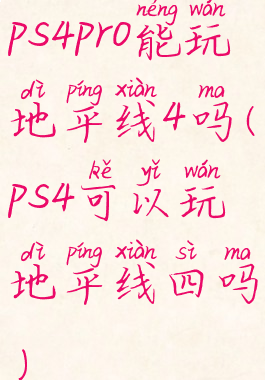 néng wán
ps4pro能玩
dì píng xiàn ma
地平线4吗(
kě yǐ wán
ps4可以玩
dì píng xiàn sì ma
地平线四吗
)